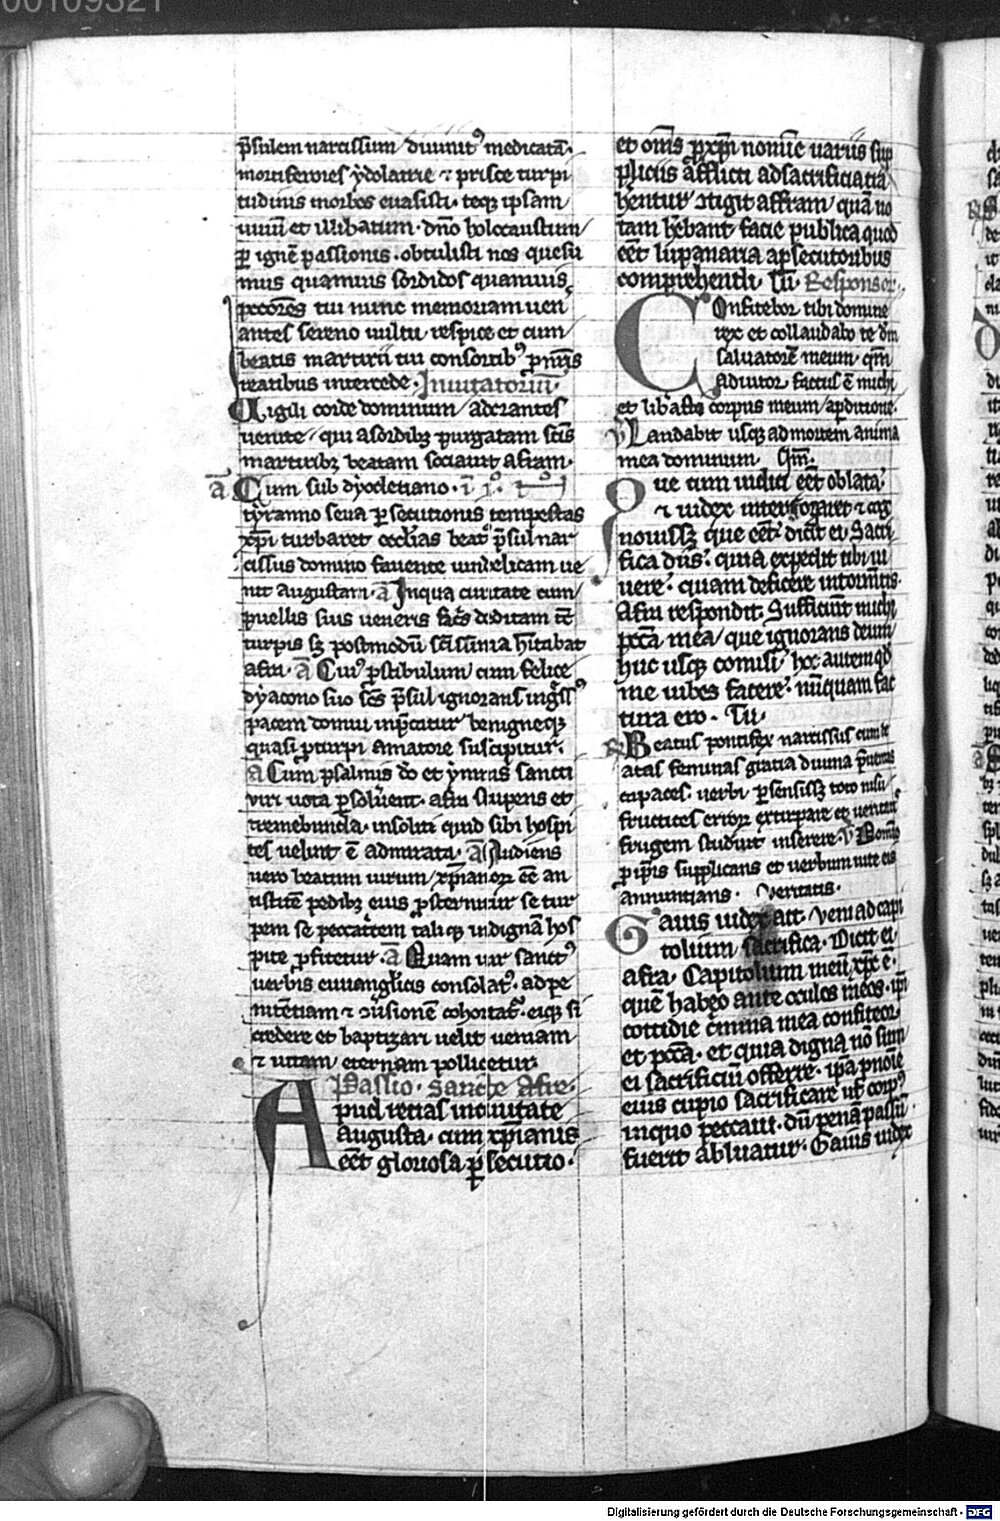 00109321
p̄sulem narcissum diuinitꝰ medicatā·
mortiferoies ẏdolatrie ⁊ prisce turpi
tudinis morbos euasisti· teqꝫ ipsam
uiuū et illibatum· dn̄o holocaustum
ꝑ ignē passionis· obtulisti nos quesu
mus quamuis sordidos quamuis
pccōres tui nunc memoriam uen
antes sereno uultu· respice et cum
beatis martirii tui consortibꝰ
reatibus intercede· Inuitatoriū·
Uigili corde dominum adorantes
uenite qui a sordibꝫ purgatam scīs
martiribꝫ beatam sociauit afram·
ā Cum sub dyocletiano·
tẏranno seua ꝑsecutionis tempestas
xp̄i turbaret eccl̄ias beatꝰ p̄sul nar
cissus domino fauente uindelicam ue
nit augustam· ā In qua ciuitate cum
puellis suis ueneris deditam
turpis sꝫ postmodū hītabat
afra· ā Cuiꝰ ꝓstibulum cum felice
dyacono suo scs p̄sul ignorans ingꝰ
pacem domui inp̄catur benigneqꝫ
quasi ꝓ turpi amatore suscipitur·
ā Cum psalmis dō et ymnis sancti
viri uota ꝑsoluent· afra stupens et
tremebunda· insoliti quid sibi hospi
tes uelint ē admirata· ā Audiens
uero beatum uirum xp̄ianoꝝ eē an
tistitē pedibꝫ eius ꝓsternitur se tur
pem se peccatricem taliqꝫ indignā hos
pite ꝓfitetur· ā Quam uir sanctꝰ
uerbis euuanglicis consolatꝰ· ad pe
nitētiam ⁊ ꝯuersionē cohortat᷑· eiqꝫ si
credere et baptizari uelit ueniam
⁊ uitam eternam pollicetur·
Passio· Sancte Afre·
Apud retias in ciuitate
augusta· cum xp̄ianis
eēt gloriosa ꝑsecutio·
et om̄s ꝓ xp̄i nomīe uariis sup
pliciis afflicti ad sacrificia tra
hentur ꝯtigit affram quā uo
tam hēbant facie publica quod
eēt lupanaria a ꝑsecutoribus
comprehendi· Tu· Responsor·
Confitebor tibi domine
rex et collaudabo te dm̄
saluatorē meum· qm̄
adiutor factus ē michi
et libasti corpus meum a ꝑditione·
v̄ Laudabit usqꝫ ad mortem anima
mea dominum Qm̄·
Que cum iudici eēt oblata·
⁊ iudex interrogaret ⁊ cog
nouissꝫ que eēt· dicit ei· Sacri
fica diis· quia expedit tibi ui
uere· quam deficere in tormtis·
Afra respondit· Sufficiūt michi
pcca mea que ignorans deum
huc usqꝫ comisi· hoc autem qd̄
me iubes facere· nūquam fac
tura ero· Tu·
R̄ Beatus pontifex narcissus
atas feminas gratia diuina
capaces uerbi ꝑsensissꝫ toto nisu
fructices erroꝝ extirpare et ueritatis
frugem studuit inserere· v̄
ꝓ ipsis supplicans et uerbum uite eis
annuntians· Veritatis·
Gaius iudex ait· Veni ad capi
tolium sacrifica· Dicit ei
afra· Capitolium meū xp̄c ē·
quē habeo ante oculos meos· ip̄i
cottidie cͥmina mea confiteor
et pcca· et quia digna nō sum
ei sacrificiū offerre· ipā
eius cupio sacrificare ut corpꝰ
in quo peccaui· dū penā passū
fuerit abluatur· Gaius iudex
Digitalisierung gefördert durch die Deutsche Forschungsgemeinschaft - DFG